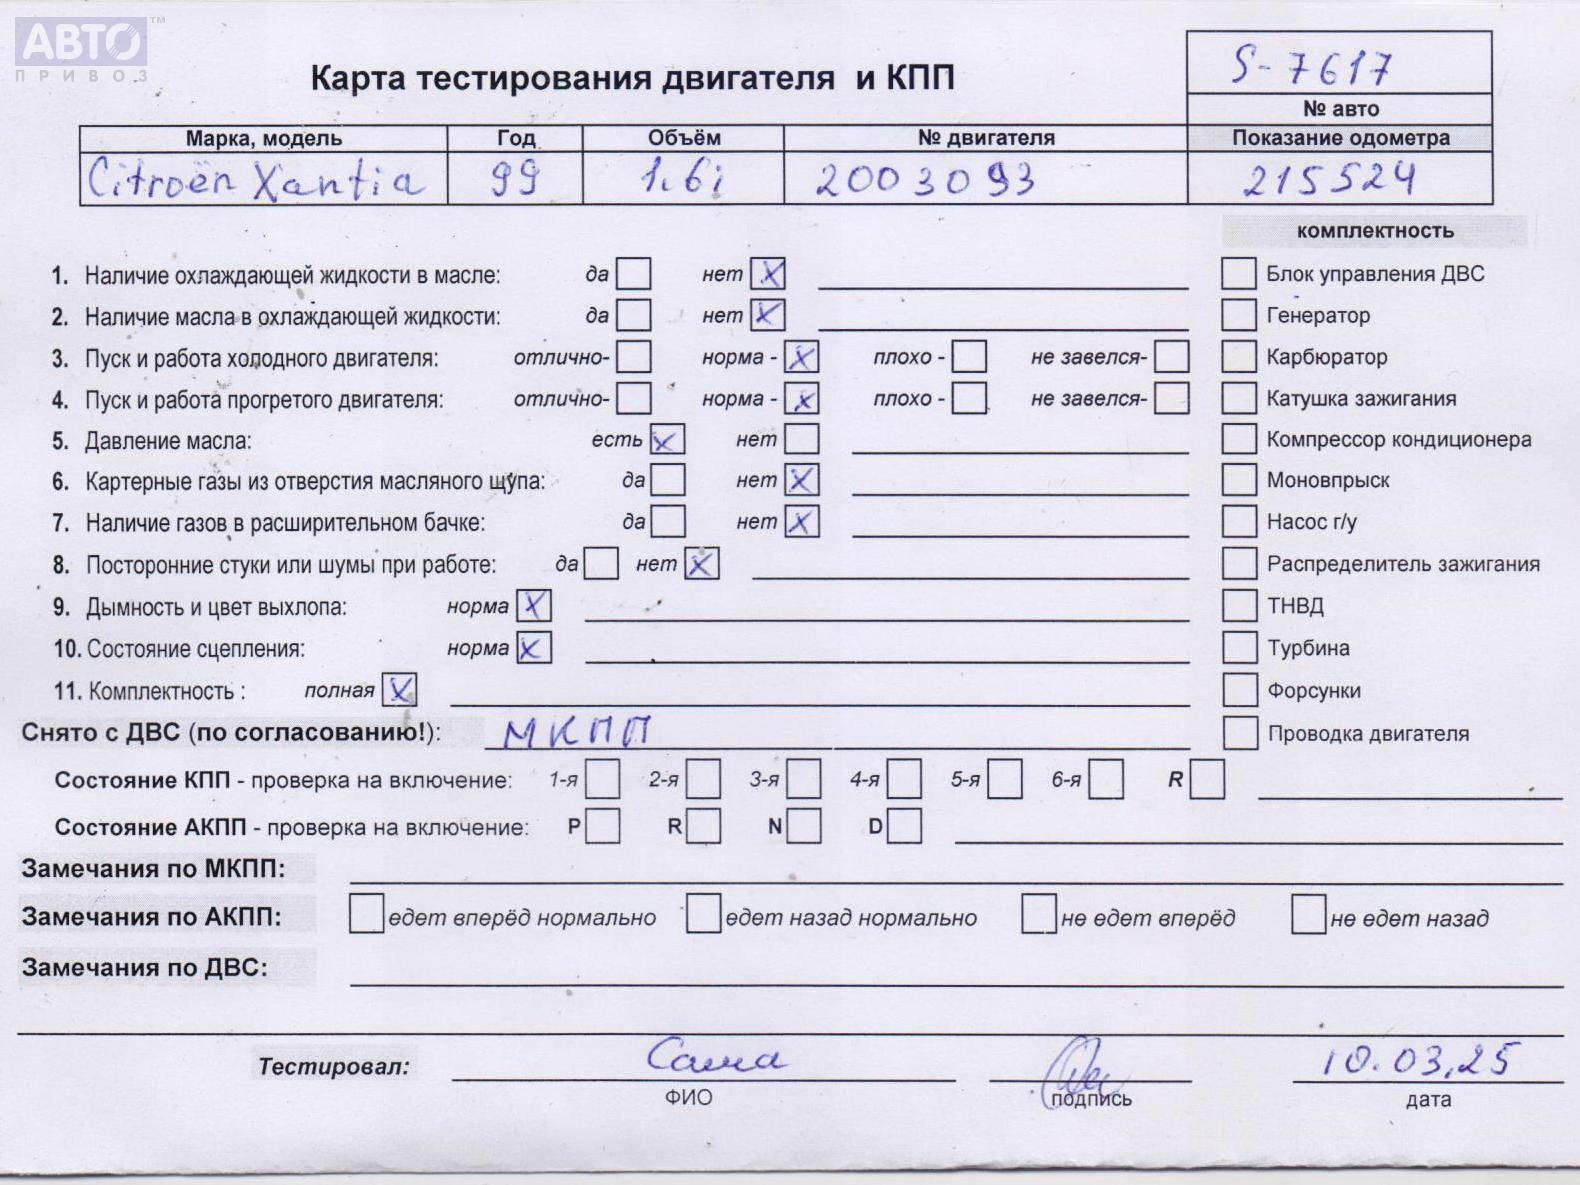 АВТО™
ПРИВОЗ
S-7617
Карта тестирования двигателя и КПП
№ авто
Марка, модель Год Объём № двигателя Показание одометра
Citroën Xantia 99 1.6i 2003093 215524
комплектность
1. Наличие охлаждающей жидкости в масле: да нет X Блок управления ДВС
2. Наличие масла в охлаждающей жидкости: да нет X Генератор
3. Пуск и работа холодного двигателя: отлично- норма - X плохо - не завелся- Карбюратор
4. Пуск и работа прогретого двигателя: отлично- норма - X плохо - не завелся- Катушка зажигания
5. Давление масла: есть X нет Компрессор кондиционера
6. Картерные газы из отверстия масляного щупа: да нет X Моновпрыск
7. Наличие газов в расширительном бачке: да нет X Насос г/у
8. Посторонние стуки или шумы при работе: да нет X Распределитель зажигания
9. Дымность и цвет выхлопа: норма X ТНВД
10. Состояние сцепления: норма X Турбина
11. Комплектность : полная X Форсунки
Снято с ДВС (по согласованию!): МКПП Проводка двигателя
Состояние КПП - проверка на включение: 1-я 2-я 3-я 4-я 5-я 6-я R
Состояние АКПП - проверка на включение: P R N D
Замечания по МКПП:
Замечания по АКПП: едет вперёд нормально едет назад нормально не едет вперёд не едет назад
Замечания по ДВС:
Тестировал: Саша 10.03.25
ФИО подпись дата